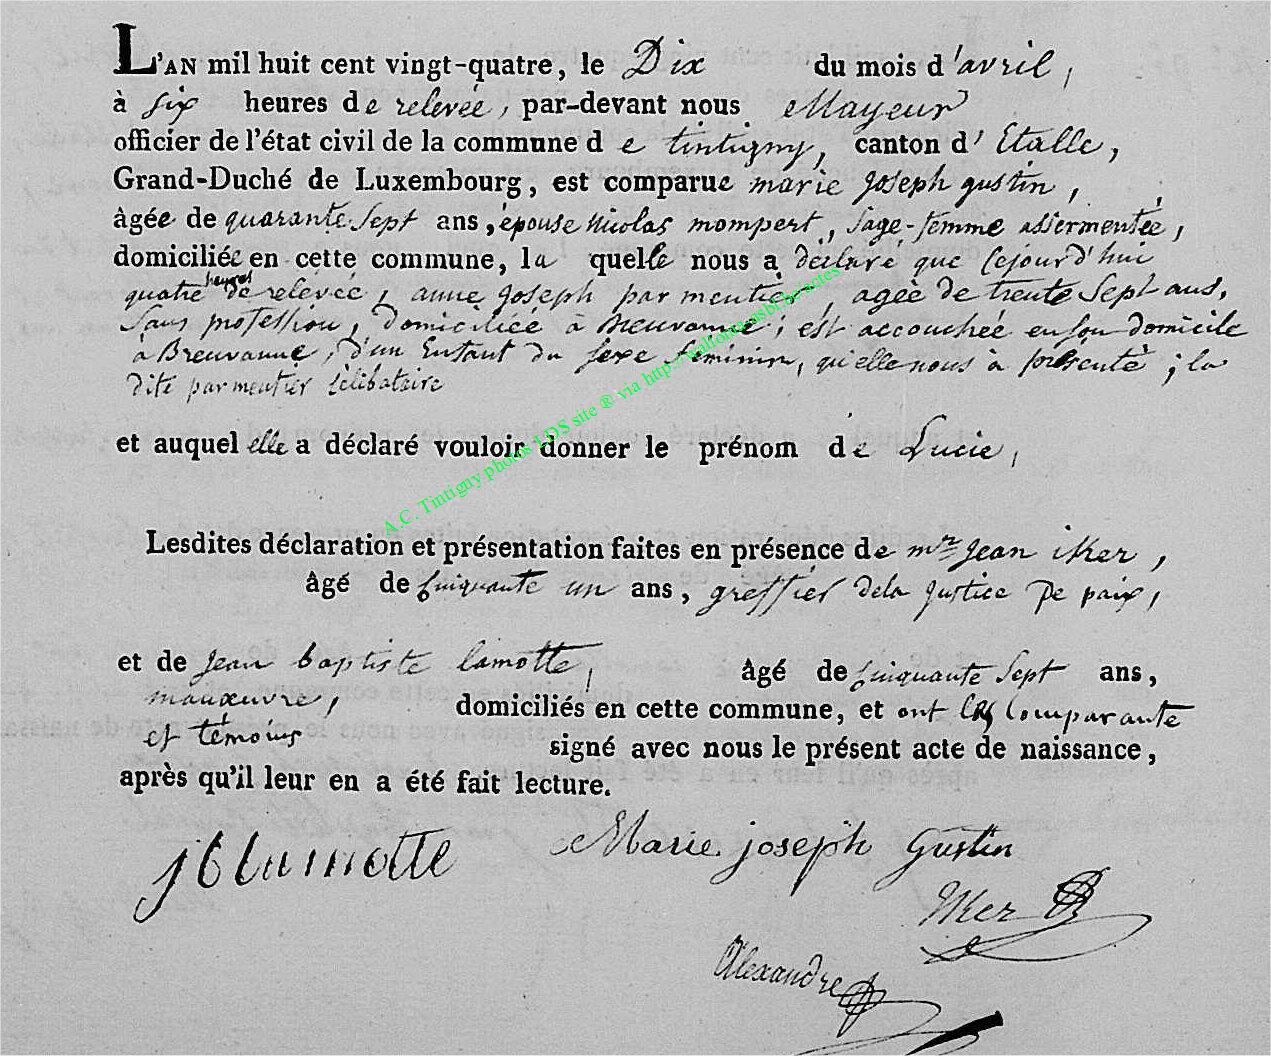 L'AN mil huit cent vingt-quatre, le Dix du mois d'avril,
à Six heures de relevée, par-devant nous Mayeur
officier de l'état civil de la commune d e tintigny, canton d' Etalle,
Grand-Duché de Luxembourg, est comparue marie Joseph gustin,
âgée de quarante Sept ans, épouse Nicolas mompert, Sage-femme assermentée,
domiciliée en cette commune, la quelle nous a déclaré que Cejourd'hui
quatre heures de relevée, anne Joseph parmentier, agée de trente Sept ans,
Sans profession, domiciliée à Breuvanne, est accouchée en son domicile
à Breuvanne, d'un Enfant du Sexe féminin, qu'elle nous à présenté ; la
dite parmentier Célibataire
et auquel elle a déclaré vouloir donner le prénom de Lucie,
A.C. Tintigny photos LDS site ® via http://wallonia.asbl.be/actes
Lesdites déclaration et présentation faites en présence de mr Jean iker,
âgé de Cinquante un ans, greffier dela Justice De paix,
et de Jean baptiste lamotte, âgé de Cinquante Sept ans,
manœuvre, domiciliés en cette commune, et ont les Comparante
et témoins signé avec nous le présent acte de naissance,
après qu'il leur en a été fait lecture.
jb lamotte Marie joseph Gustin
Iker
Alexandre